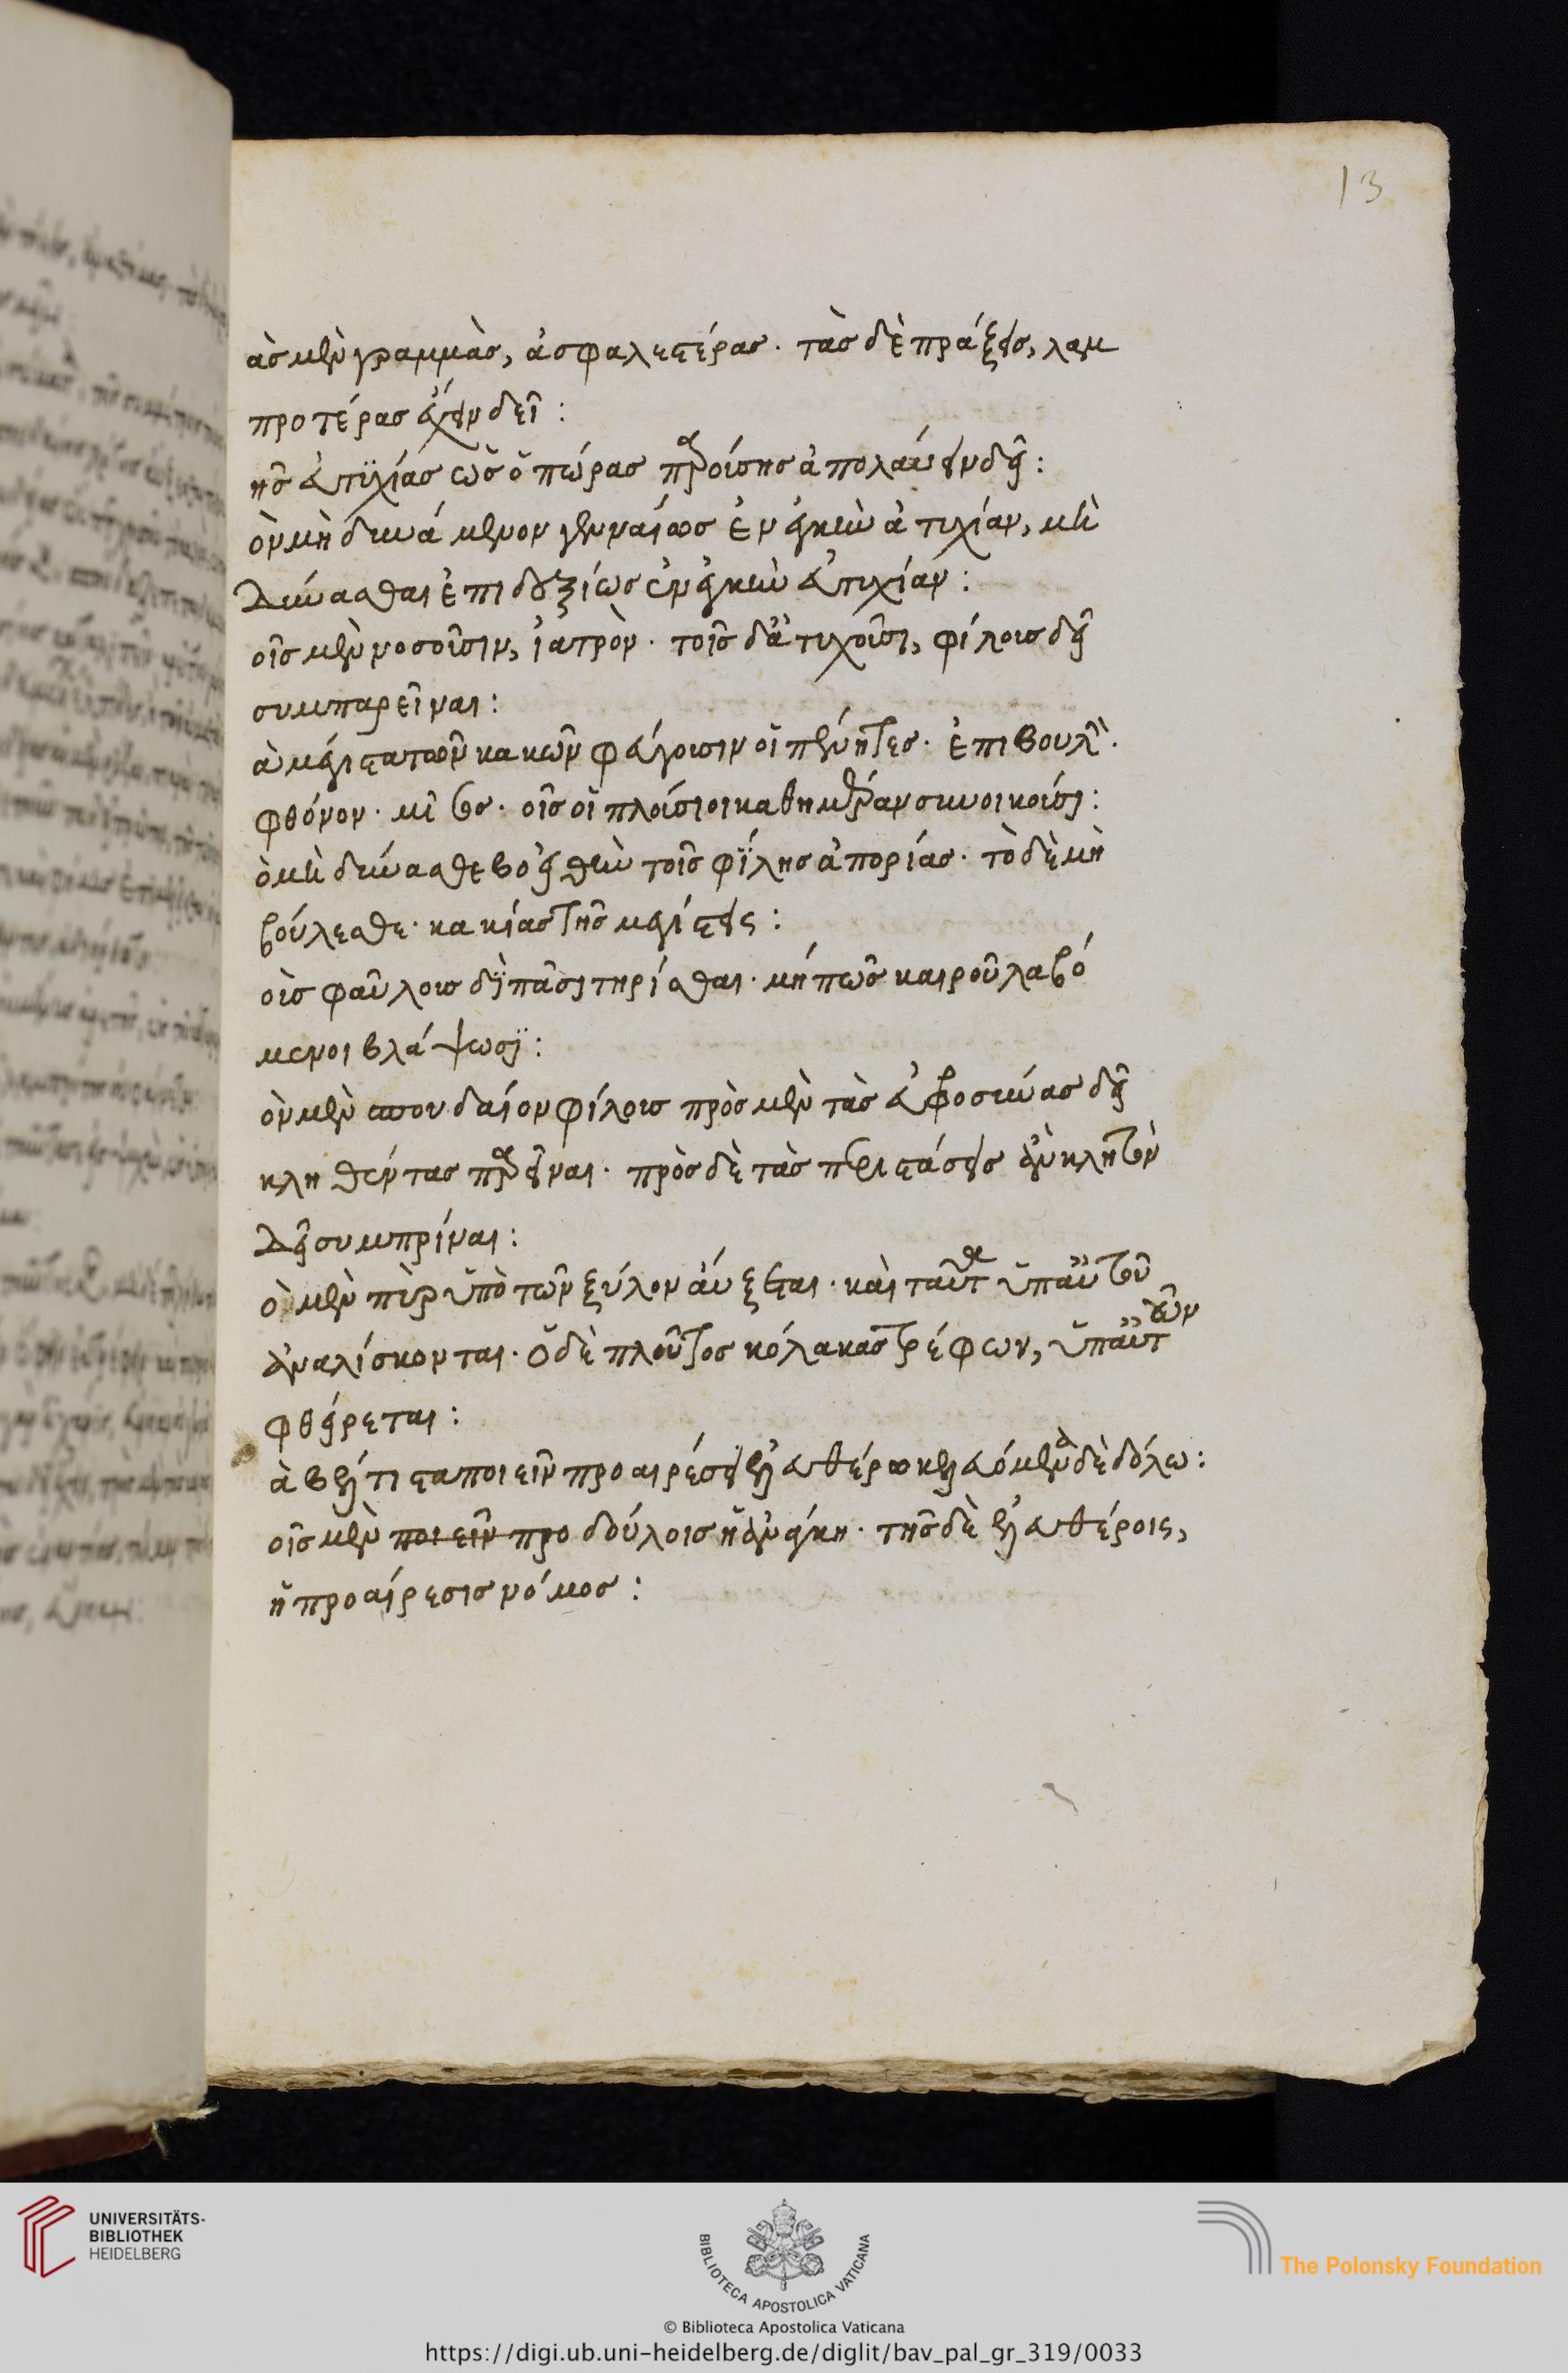 13
ὰσ μὲν γραμμὰσ, ἀσφαλεστέρασ · τὰσ δὲ πράξεισ, λαμ
προτέρασ ἔχειν δεῖ :
ῆσ εὐτϋχίασ ὡσ ὀπώρασ παρούσησ ἀπολαύειν δεῖ :
ὸν μὴ δυνάμενον γενναίωσ ἐνεγκεῖν ἀτυχίαν, μὴ
δύνασθαι ἐπιδεξίωσ ἐνεγκεῖν εὐτυχίαν :
οῖσ μὲν νοσοῦσιν, ἰατρὸν · τοῖσ δ' ἀτυχοῦσι, φίλουσ δεῖ
συμπαρεῖναι :
ὰ μέγιστα τῶν κακῶν φεύγουσιν οἱ πένητεσ · ἐπιβουλὴν ·
φθόνον · μῖσοσ · οἷσ οἱ πλούσιοι καθημέραν συνοικοῦσι :
ὸ μὴ δύνασθε βοειθεῖν τοῖσ φΐλησ ἀπορίασ · τὸ δὲ μὴ
βούλεσθε · κακίασ τῆσ μεγίστησ :
οὺσ φαύλουσ δϊπᾶσι τηρίσθαι · μήπωσ καιροῦ λαβό
μενοι βλάψωσϊ :
ὸν μὲν σπουδαίον φίλοισ πρὸσ μὲν τὰσ εὐφροσύνασ δεῖ
κληθέντασ παρεῖναι · πρὸσ δὲ τὰσ περιστάσεισ ἄνκλητον
δεῖ συμπρίναι :
ὸ μὲν πὺρ ὑπὸ τῶν ξύλον ἀύξεται · καὶ ταῦτα ὑπ' αὐτοῦ
ἀναλίσκονται · ὁ δὲ πλοῦτοσ κόλακασ τρέφων, ὑπ' αὐτῶν
φθείρεται :
ὰ βέλτιστα ποιεῖν προαιρέσει ἐλευθέρω κελευόμενα δὲ δόλω :
οῖσ μὲν ποιεῖν προ δούλοισ ἡ ἀνάγκη · τῆσ δὲ ἐλευθέροις,
ἡ προαίρεσισ νόμοσ :
UNIVERSITÄTS-
BIBLIOTHEK
HEIDELBERG
BIBLIOTECA APOSTOLICA VATICANA
The Polonsky Foundation
© Biblioteca Apostolica Vaticana
https://digi.ub.uni-heidelberg.de/diglit/bav_pal_gr_319/0033